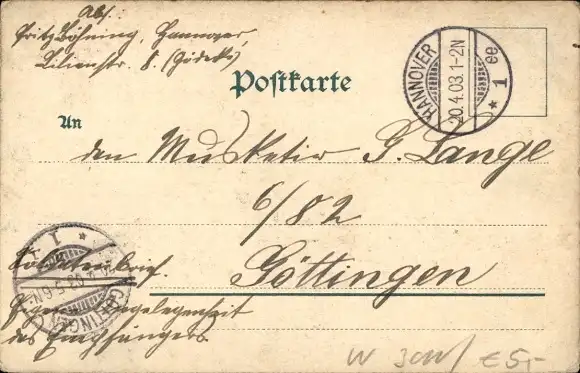 Abs.:
Fritz Böhning, Hannover,
Lilienstr. 8. (Gödecke)
Postkarte
HANNOVER
20.4.03.1-2N
* 1 ee
An
den Musketier G. Lange
6/82
Soldatenbrief. Göttingen
Eigene Angelegenheit
des Empfängers
GÖTTINGEN
* 1
€ 5,-